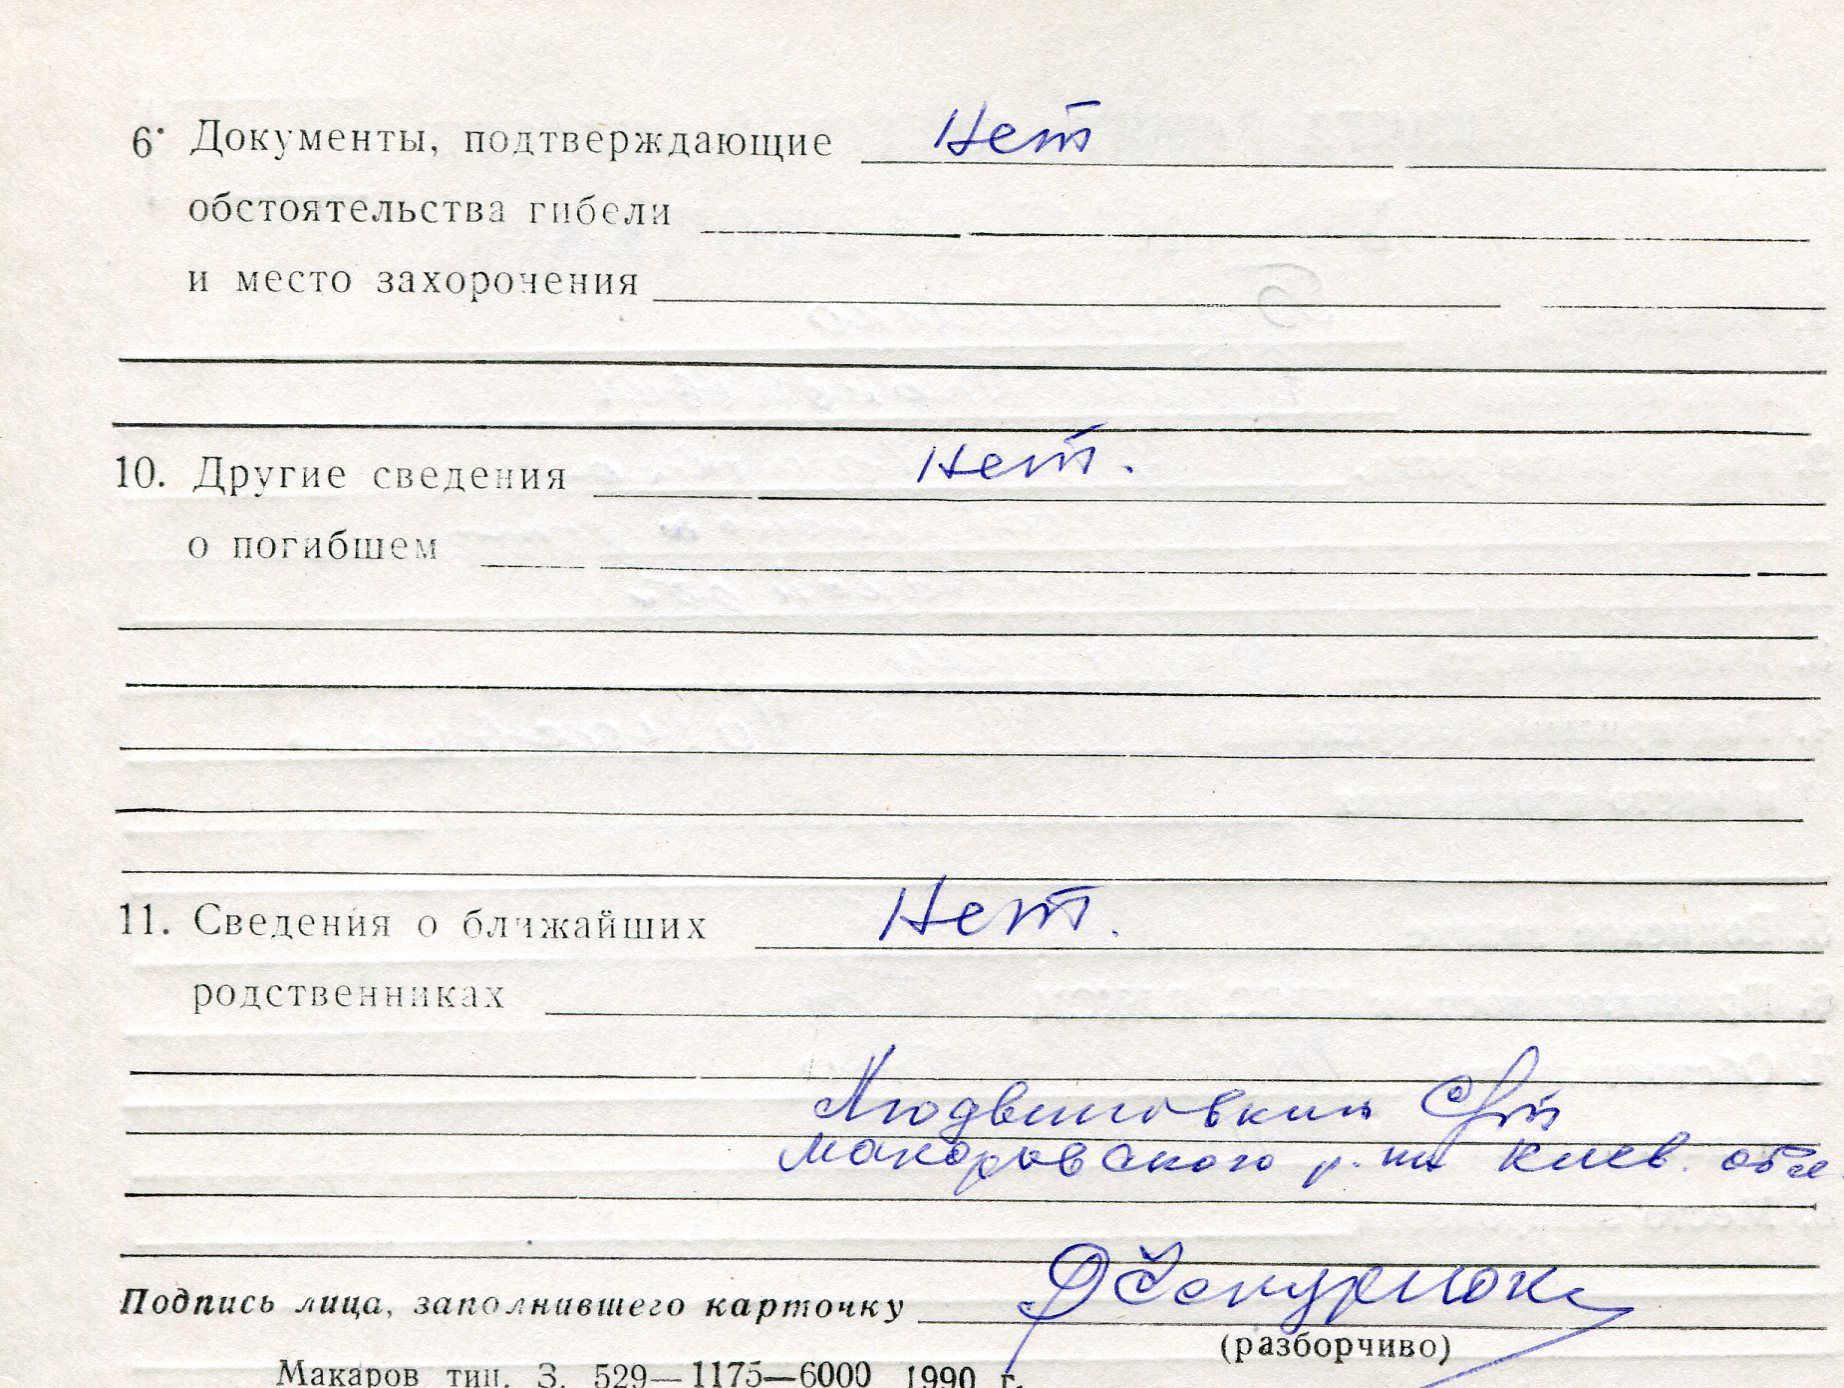 6. Документы, подтверждающие Нет
обстоятельства гибели
и место захорочения
10. Другие сведения Нет.
о погибшем
11. Сведения о ближайших Нет.
родственниках
Людвиновкий С/с
Макаровского р-на Киев. обл.
Подпись лица, заполнившего карточку
(разборчиво)
Макаров тип. З. 529—1175—6000 1990 г.